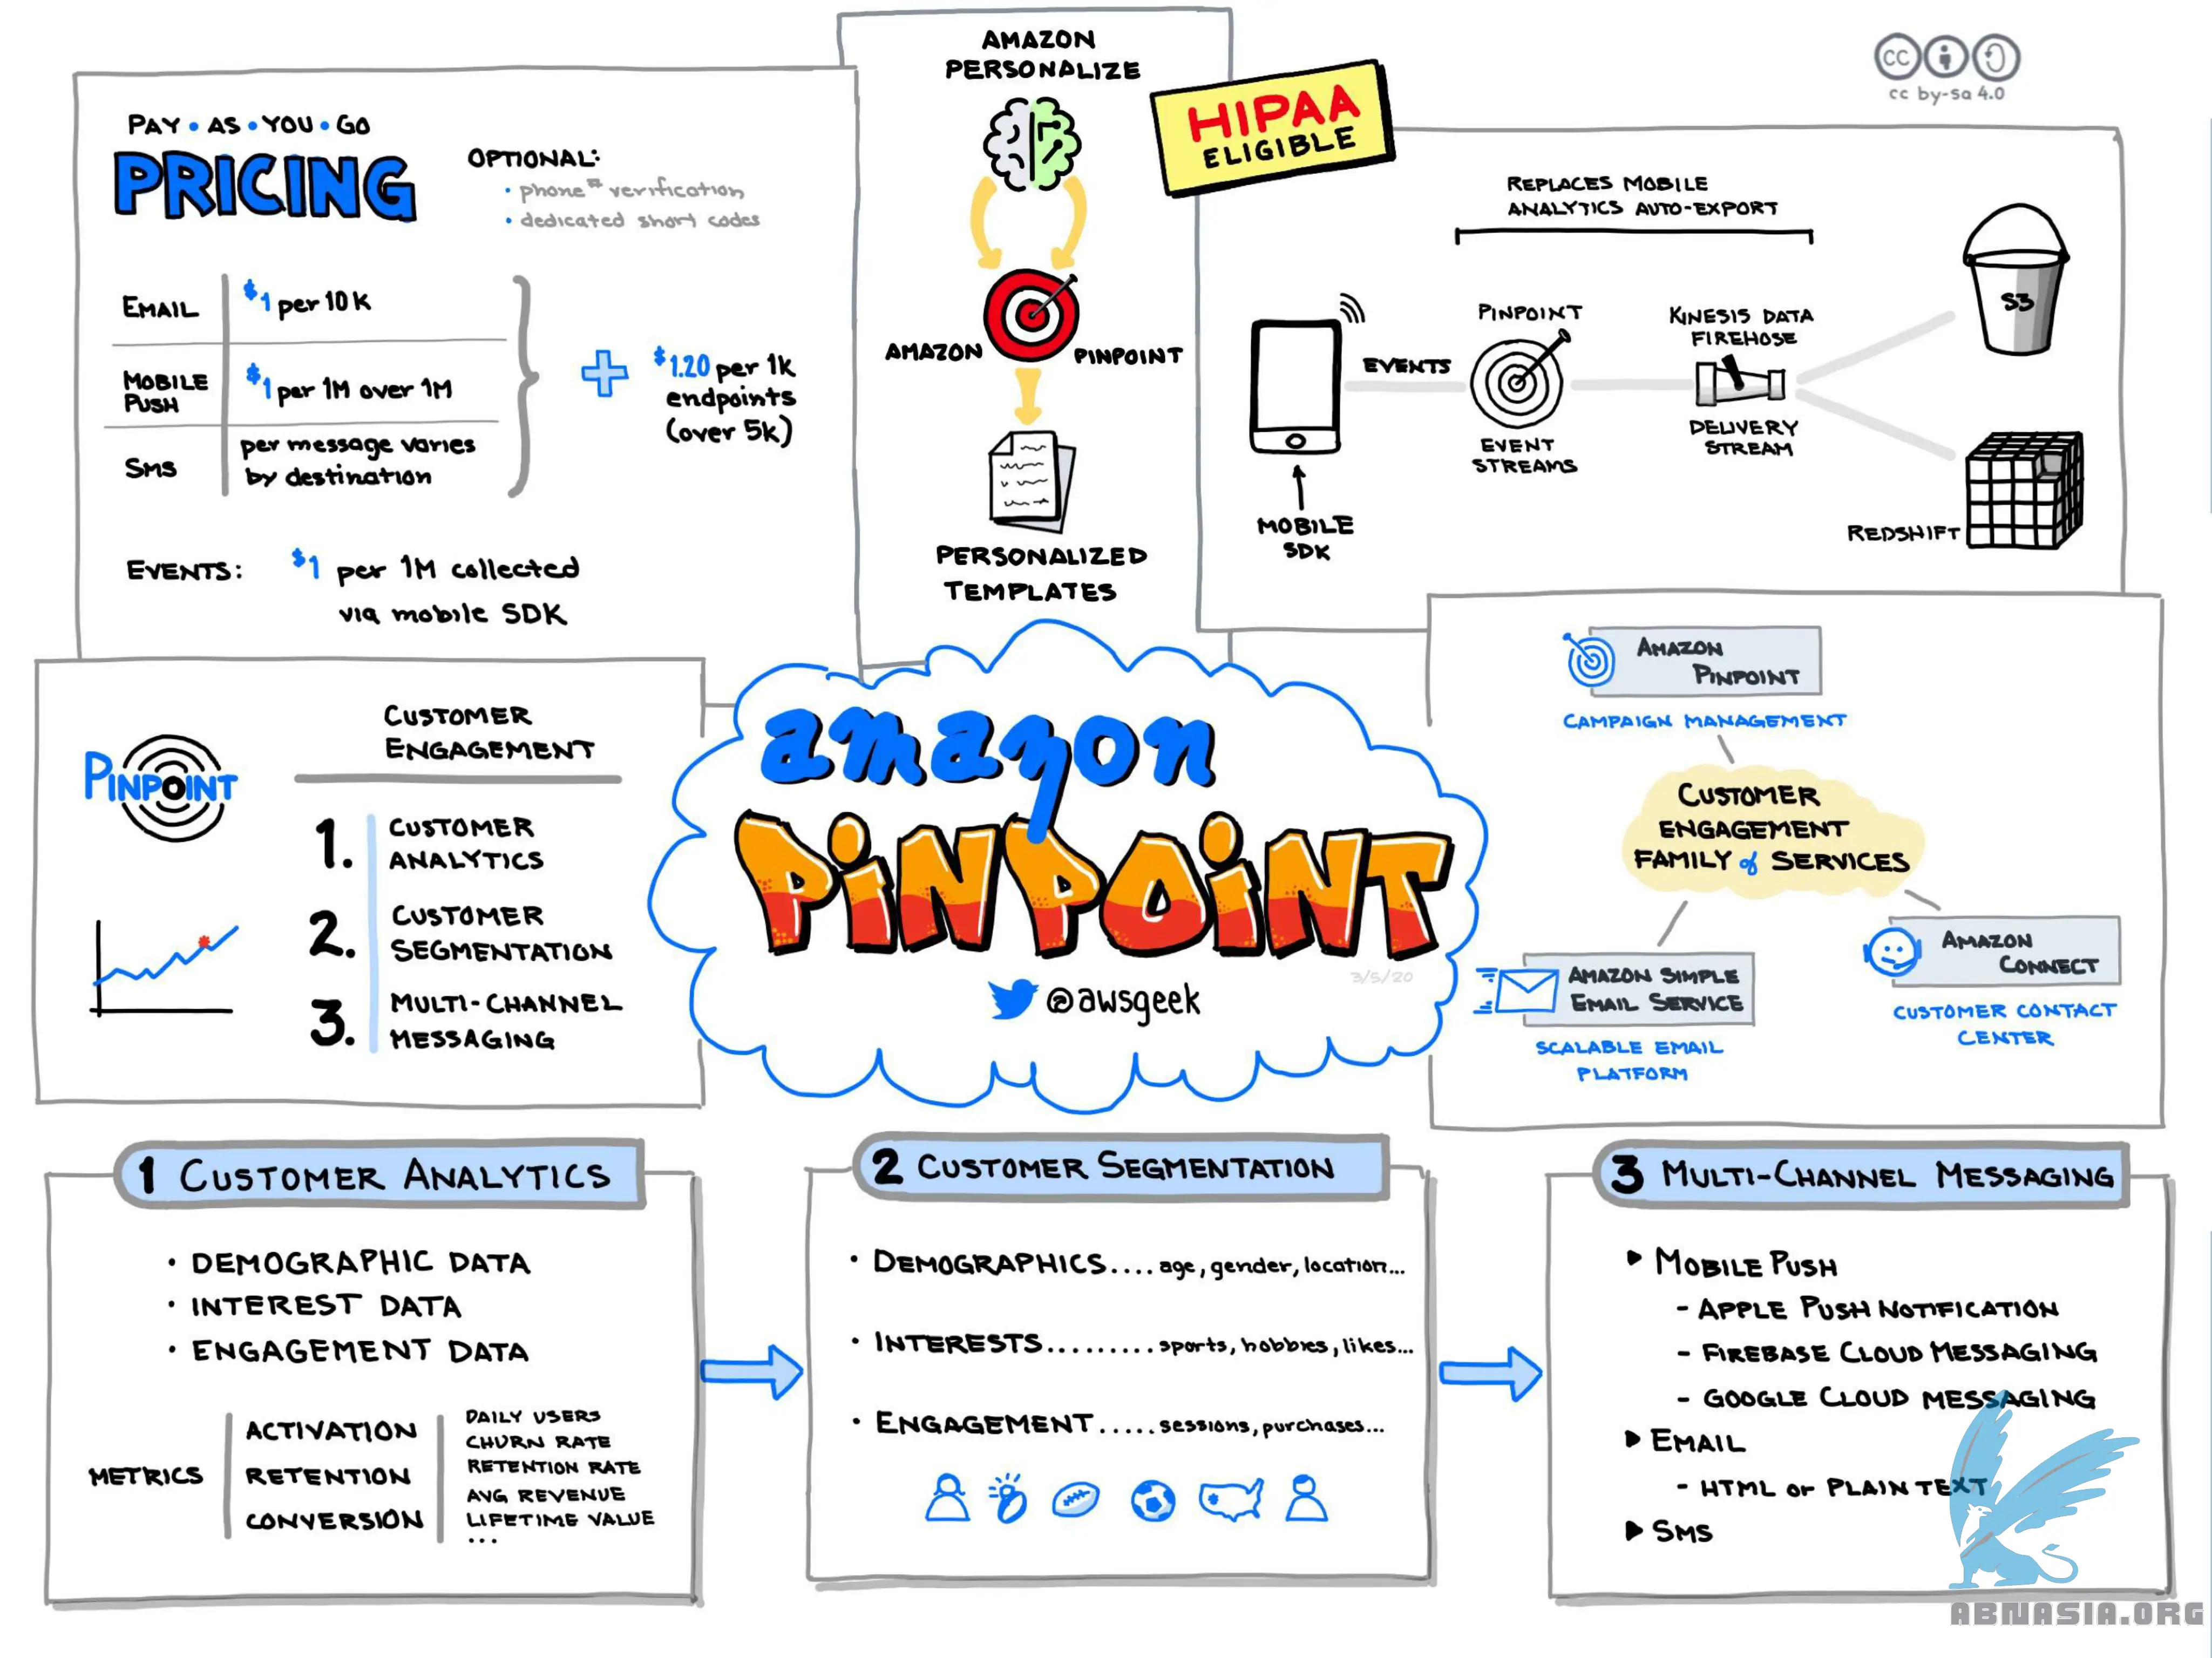 PAY • AS • YOU • GO
PRICING
OPTIONAL:
• phone # verification
• dedicated short codes
EMAIL
$1 per 10K
MOBILE
PUSH
$1 per 1M over 1M
SMS
per message varies
by destination
+
$1.20 per 1K
endpoints
(over 5K)
EVENTS:
$1 per 1M collected
via mobile SDK
AMAZON
PERSONALIZE
AMAZON
PINPOINT
PERSONALIZED
TEMPLATES
HIPAA
ELIGIBLE
cc
cc by-sa 4.0
REPLACES MOBILE
ANALYTICS AUTO-EXPORT
MOBILE
SDK
EVENTS
PINPOINT
EVENT
STREAMS
KINESIS DATA
FIREHOSE
DELIVERY
STREAM
S3
REDSHIFT
PINPOINT
CUSTOMER
ENGAGEMENT
1. CUSTOMER
ANALYTICS
2. CUSTOMER
SEGMENTATION
3. MULTI-CHANNEL
MESSAGING
amazon
PINPOINT
3/5/20
@awsgeek
AMAZON
PINPOINT
CAMPAIGN MANAGEMENT
CUSTOMER
ENGAGEMENT
FAMILY of SERVICES
AMAZON SIMPLE
EMAIL SERVICE
SCALABLE EMAIL
PLATFORM
AMAZON
CONNECT
CUSTOMER CONTACT
CENTER
1 CUSTOMER ANALYTICS
• DEMOGRAPHIC DATA
• INTEREST DATA
• ENGAGEMENT DATA
METRICS
ACTIVATION
RETENTION
CONVERSION
DAILY USERS
CHURN RATE
RETENTION RATE
AVG REVENUE
LIFETIME VALUE
...
2 CUSTOMER SEGMENTATION
• DEMOGRAPHICS.... age, gender, location...
• INTERESTS......... sports, hobbies, likes...
• ENGAGEMENT..... sessions, purchases...
3 MULTI-CHANNEL MESSAGING
▶ MOBILE PUSH
- APPLE PUSH NOTIFICATION
- FIREBASE CLOUD MESSAGING
- GOOGLE CLOUD MESSAGING
▶ EMAIL
- HTML or PLAIN TEXT
▶ SMS
ABNASIA.ORG